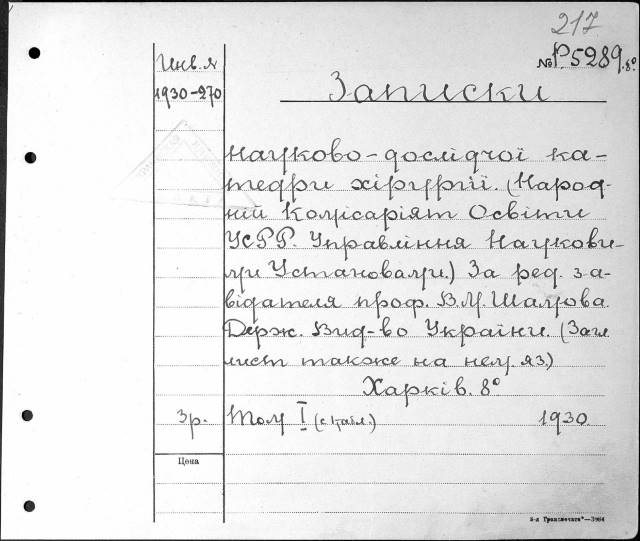 217
Инв. №
№ Р.5289.8°
1930-270
Записки
науково-дослідчої ка-
тедри хірургії. (Народ-
ній Комісаріят Освіти
УСРР. Управління Наукови-
ми Установами.) За ред. за-
відателя проф. В.М. Шамова.
Держ. Вид-во України. (Загл.
лист також на нем. яз.)
Харків. 8°
3р. Том I (с табл.) 1930.
Цена